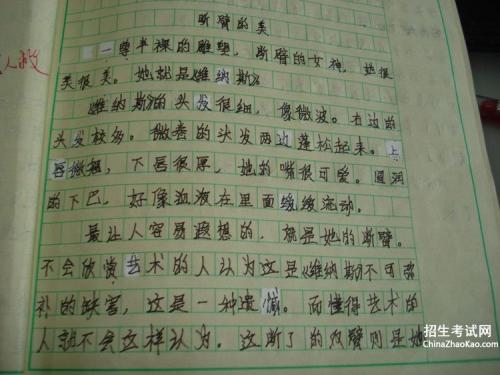 断臂的美
一尊半裸的雕塑，断臂的女神，她很
美很美。她就是《维纳斯》
《维纳斯》的头发很细，像微波。右边的
头发较多。微卷的头发两边蓬松起来。上
唇微翘，下唇很厚，她的嘴很可爱。圆润
的下巴，好像血液在里面缓缓流动。
最让人容易遐想的，就是她的断臂。
不会欣赏艺术的人认为这是《维纳斯》不可弥
补的缺害，这是一种遗憾。而懂得艺术的
人就不会这样认为。这断了的双臂则是她
招生考试网
ChinaZhaoKao.com